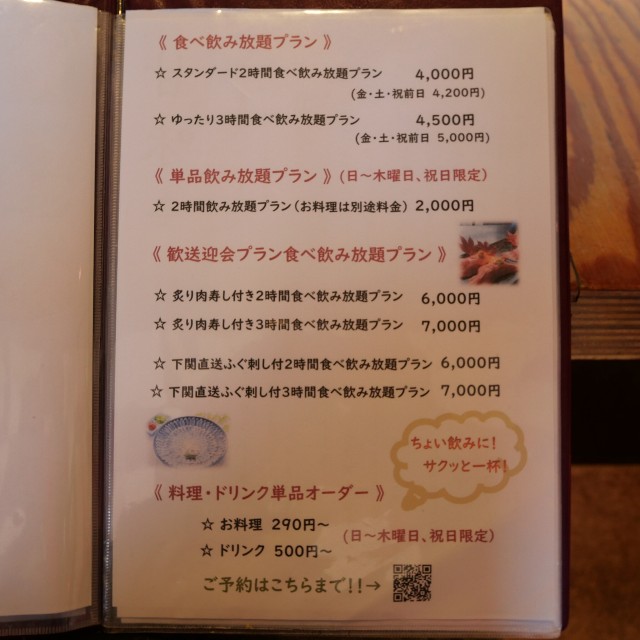 《 食べ飲み放題プラン 》
☆ スタンダード2時間食べ飲み放題プラン 4,000円
(金・土・祝前日 4,200円)
☆ ゆったり3時間食べ飲み放題プラン 4,500円
(金・土・祝前日 5,000円)
《 単品飲み放題プラン 》(日〜木曜日、祝日限定)
☆ 2時間飲み放題プラン(お料理は別途料金) 2,000円
《 歓送迎会プラン食べ飲み放題プラン 》
☆ 炙り肉寿し付き2時間食べ飲み放題プラン 6,000円
☆ 炙り肉寿し付き3時間食べ飲み放題プラン 7,000円
☆ 下関直送ふぐ刺し付2時間食べ飲み放題プラン 6,000円
☆ 下関直送ふぐ刺し付3時間食べ飲み放題プラン 7,000円
ちょい飲みに!
サクッと一杯!
《 料理・ドリンク単品オーダー 》
☆ お料理 290円〜
(日〜木曜日、祝日限定)
☆ ドリンク 500円〜
ご予約はこちらまで!!→